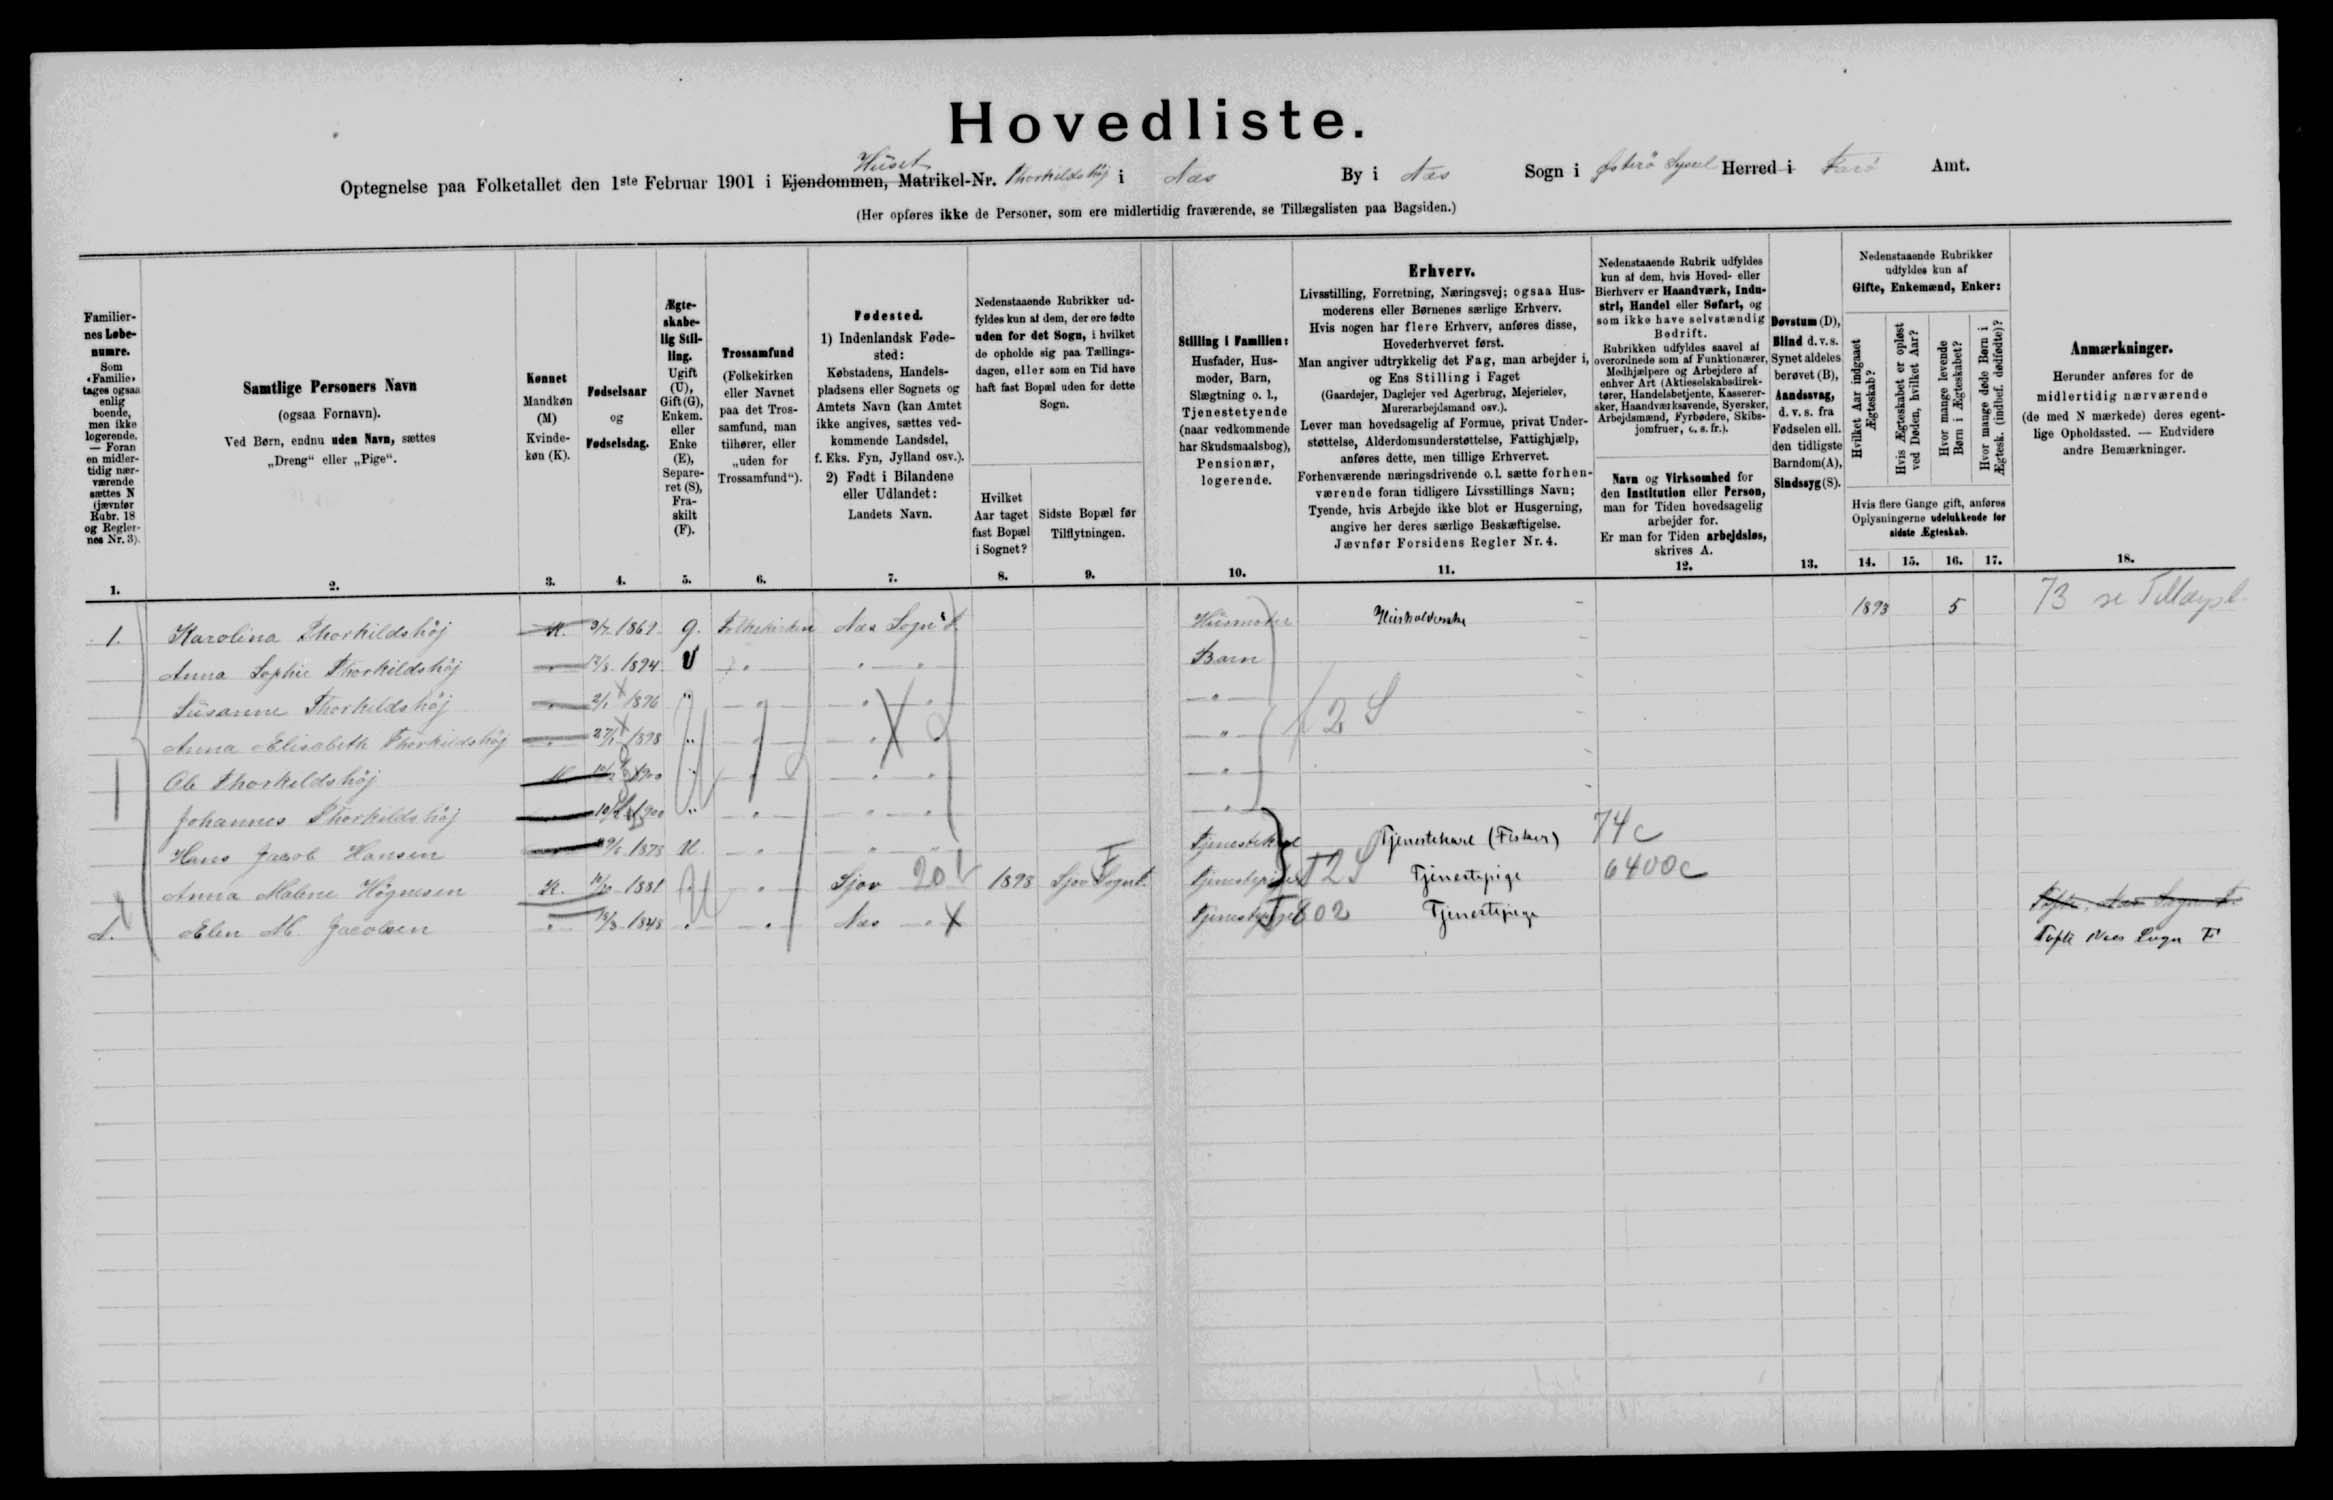 Hovedliste.
Huset
Optegnelse paa Folketallet den 1ste Februar 1901 i Ejendommen, Matrikel-Nr. Thorkildshöj i Næs By i Næs Sogn i Østerö Syssel Herred i Farö Amt.
(Her opføres ikke de Personer, som ere midlertidig fraværende, se Tillægslisten paa Bagsiden.)
Familiernes Løbenumre.
Som
«Familie»
tages ogsaa
enlig
boende,
men ikke
logerende.
— Foran
en midler-
tidig nær-
værende
sættes N
(jævnfør
Rubr. 18
og Regler-
nes Nr. 3).
1.
Samtlige Personers Navn
(ogsaa Fornavn).
Ved Børn, endnu uden Navn, sættes
„Dreng“ eller „Pige“.
2.
Kønnet
Mandkøn
(M)
Kvinde-
køn (K).
3.
Fødselsaar
og
Fødselsdag.
4.
Ægte-
skabe-
lig Stil-
ling.
Ugift
(U),
Gift (G),
Enkem.
eller
Enke
(E),
Separe-
ret (S),
Fra-
skilt
(F).
5.
Trossamfund
(Folkekirken
eller Navnet
paa det Tros-
samfund, man
tilhører, eller
„uden for
Trossamfund“).
6.
Fødested.
1) Indenlandsk Føde-
sted:
Købstadens, Handels-
pladsens eller Sognets og
Amtets Navn (kan Amtet
ikke angives, sættes ved-
kommende Landsdel,
f. Eks. Fyn, Jylland osv.).
2) Født i Bilandene
eller Udlandet:
Landets Navn.
7.
Nedenstaaende Rubrikker ud-
fyldes kun af dem, der ere fødte
uden for det Sogn, i hvilket
de opholde sig paa Tællings-
dagen, eller som en Tid have
haft fast Bopæl uden for dette
Sogn.
Hvilket
Aar taget
fast Bopæl
i Sognet?
8.
Sidste Bopæl før
Tilflytningen.
9.
Stilling i Familien:
Husfader, Hus-
moder, Barn,
Slægtning o. l.,
Tjenestetyende
(naar vedkommende
har Skudsmaalsbog),
Pensionær,
logerende.
10.
Erhverv.
Livsstilling, Forretning, Næringsvej; ogsaa Hus-
moderens eller Børnenes særlige Erhverv.
Hvis nogen har flere Erhverv, anføres disse,
Hovederhvervet først.
Man angiver udtrykkelig det Fag, man arbejder i,
og Ens Stilling i Faget
(Gaardejer, Daglejer ved Agerbrug, Mejerielev,
Murerarbejdsmand osv.).
Lever man hovedsagelig af Formue, privat Under-
støttelse, Alderdomsunderstøttelse, Fattighjælp,
anføres dette, men tillige Erhvervet.
Forhenværende næringsdrivende o. l. sætte forhen-
værende foran tidligere Livsstillings Navn;
Tyende, hvis Arbejde ikke blot er Husgerning,
angive her deres særlige Beskæftigelse.
Jævnfør Forsidens Regler Nr. 4.
11.
Nedenstaaende Rubrik udfyldes
kun af dem, hvis Hoved- eller
Bierhverv er Haandværk, Indu-
stri, Handel eller Søfart, og
som ikke have selvstændig
Bedrift.
Rubrikken udfyldes saavel af
overordnede som af Funktionærer,
Medhjælpere og Arbejdere af
enhver Art (Aktieselskabsdirek-
tører, Handelsbetjente, Kasserer-
sker, Haandværksvende, Syersker,
Arbejdsmænd, Fyrbødere, Skibs-
jomfruer, o. s. fr.).
Navn og Virksomhed for
den Institution eller Person,
man for Tiden hovedsagelig
arbejder for.
Er man for Tiden arbejdsløs,
skrives A.
12.
Døvstum (D),
Blind d. v. s.
Synet aldeles
berøvet (B),
Aandssvag,
d. v. s. fra
Fødselen ell.
den tidligste
Barndom (A),
Sindssyg (S).
13.
Nedenstaaende Rubrikker
udfyldes kun af
Gifte, Enkemænd, Enker:
Hvilket Aar indgaaet
Ægteskab?
Hvis Ægteskabet er opløst
ved Døden, hvilket Aar?
Hvor mange levende
Børn i Ægteskabet?
Hvor mange døde Børn i
Ægtesk. (indbef. dødfødte)?
Hvis flere Gange gift, anføres
Oplysningerne udelukkende for
sidste Ægteskab.
14. 15. 16. 17.
Anmærkninger.
Herunder anføres for de
midlertidig nærværende
(de med N mærkede) deres egent-
lige Opholdssted. — Endvidere
andre Bemærkninger.
18.
1. Karolina Thorkildshöj K. 1869 g. Folkekirken Næs Sogn Husmoder Husholderske 1893 5 73 se Tillægsl.
Anna Sophie Thorkildshöj 1894 U Barn
Susanne Thorkildshöj 2/1 1896
Anna Elisabeth Thorkildshöj 1898 2 S
Ole Thorkildshöj M 1900
Johannes Thorkildshöj 1900
Hans Jacob Hansen 1878 U Tjenestekarl Tjenestekarl (Fisker) 74 c
Anna Malene Högnesen K. 1881 Sjov 20 1898 Sjov Sogn Tjenestepige T2S Tjenestepige 6400c
Elen M. Jacobsen 1848 Næs Tjenestepige 802 Tjenestepige Tofte Næs Sogn F.
Tofte Næs Sogn F